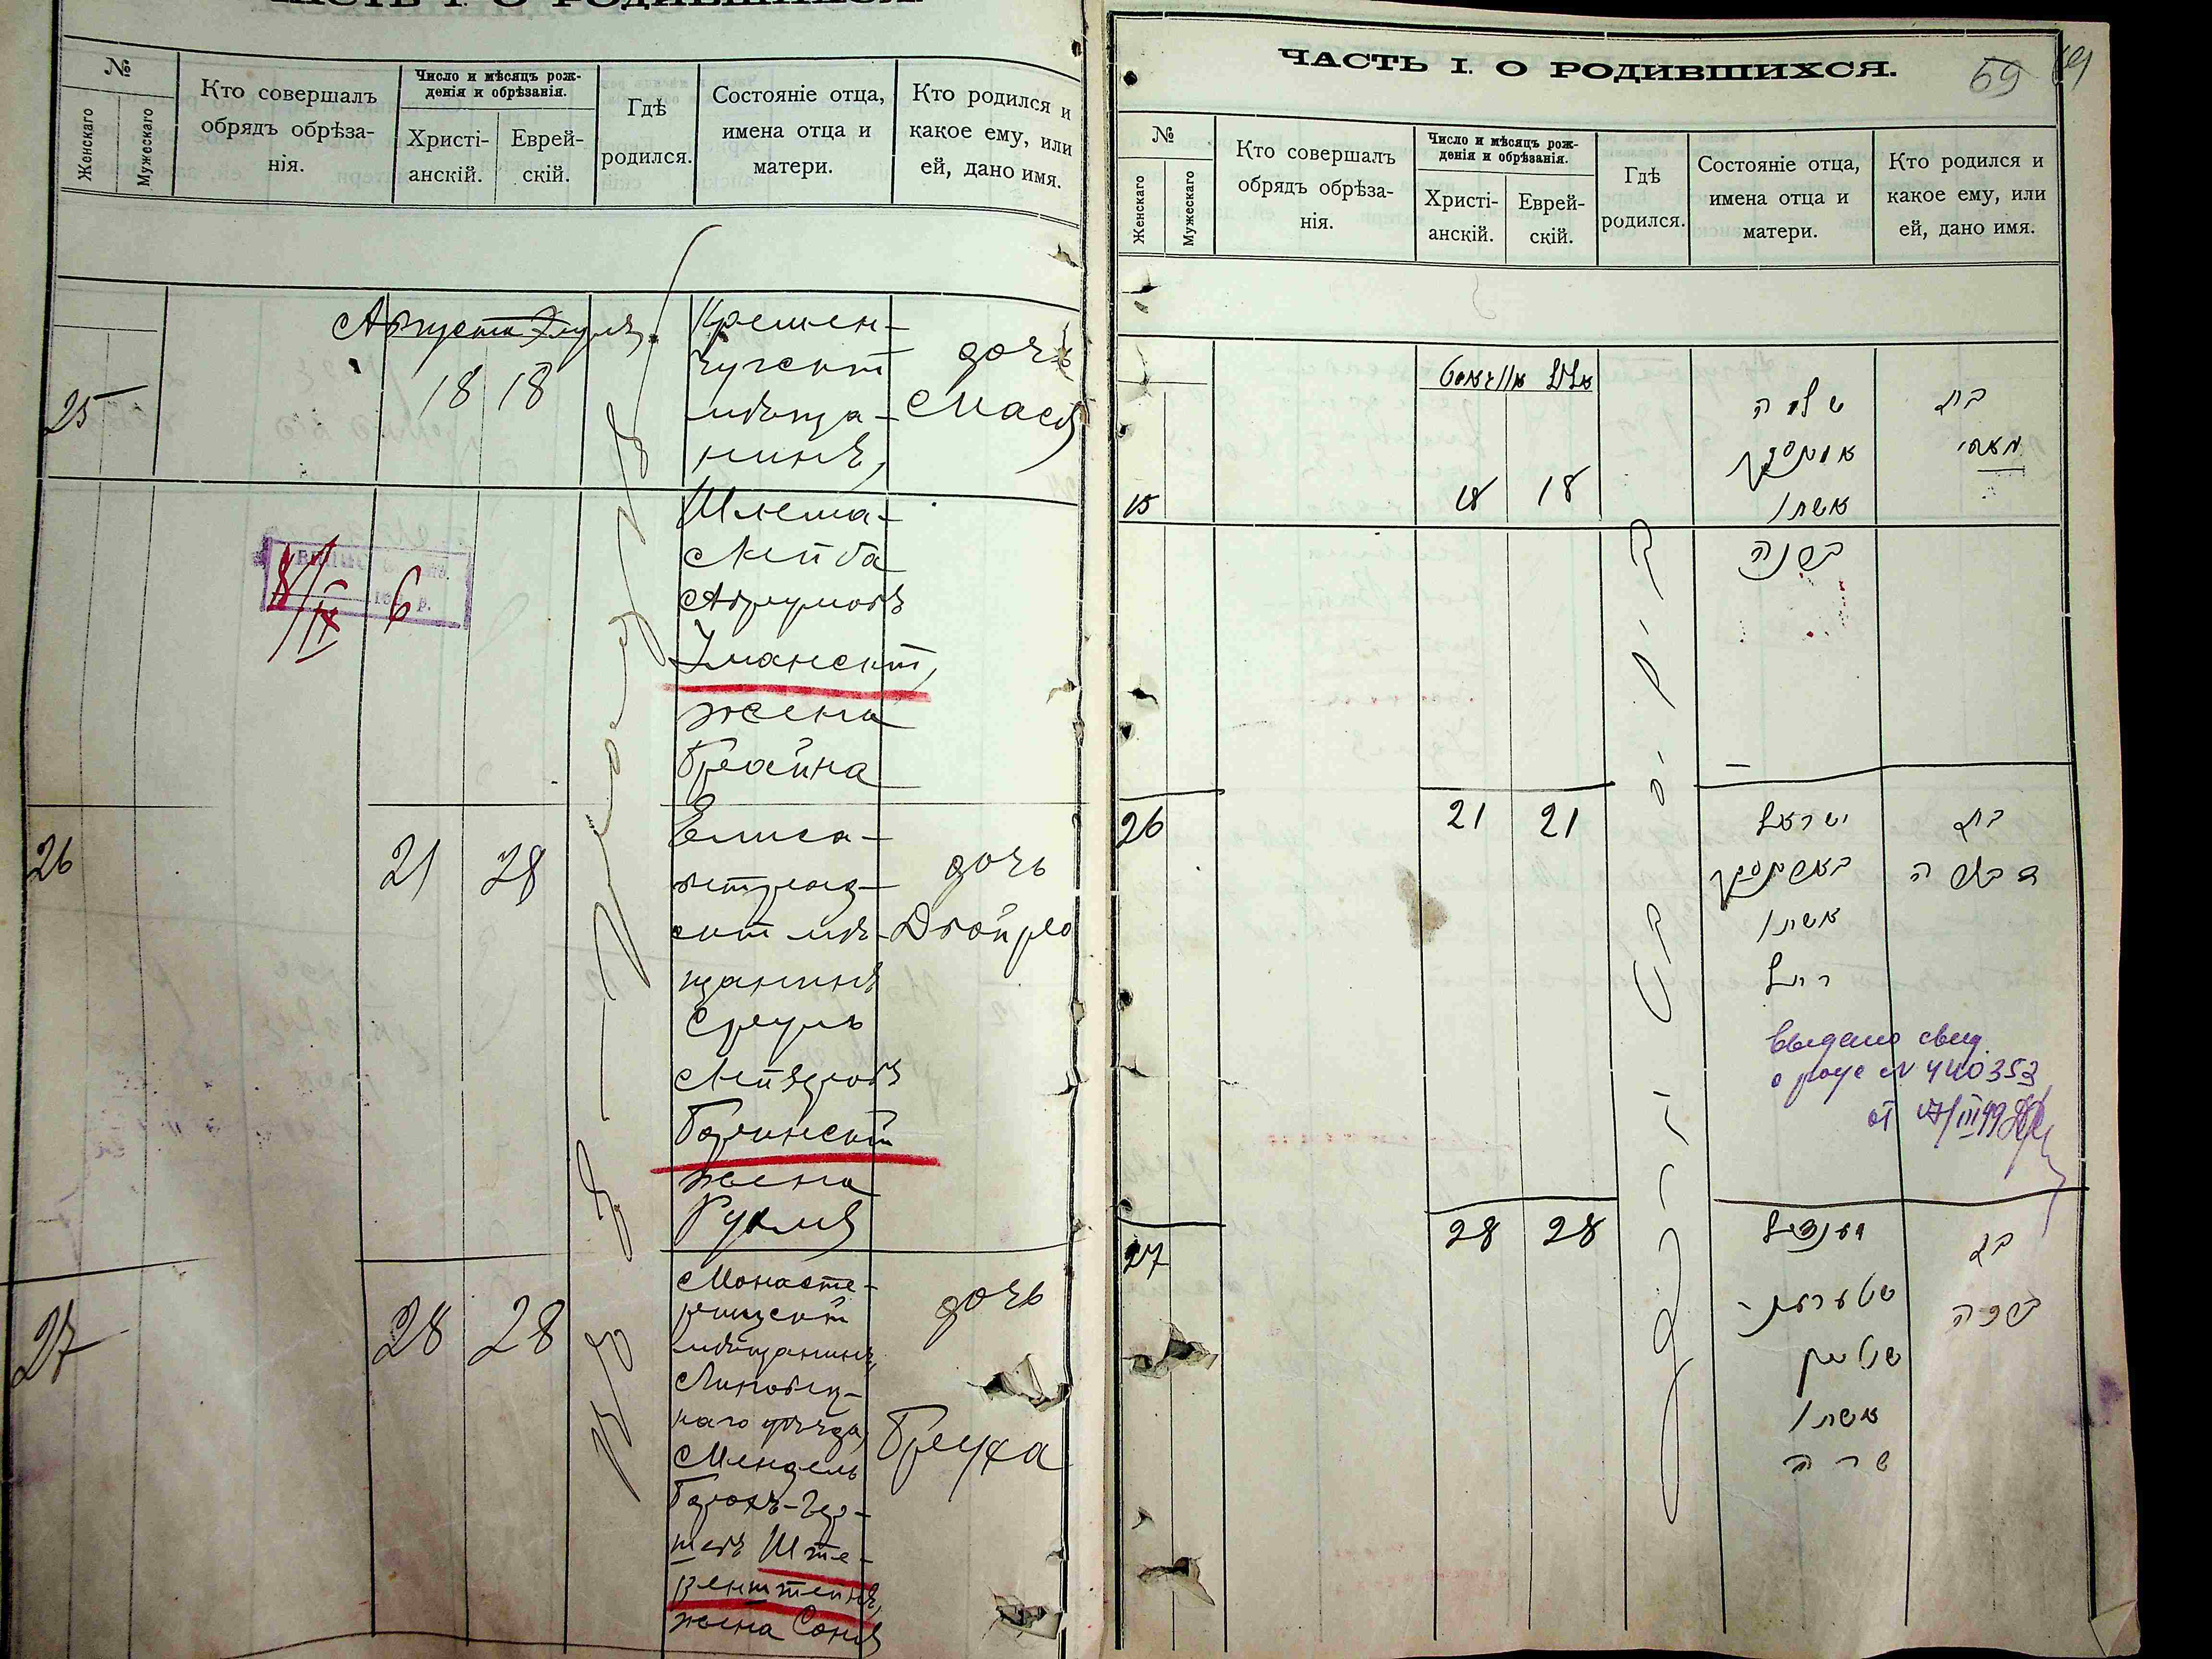 ЧАСТЬ I. О РОДИВШИХСЯ.
№
Женскаго
Мужескаго
Кто совершалъ
обрядъ обрѣза-
нія.
Число и мѣсяцъ рож-
денія и обрѣзанія.
Христі-
анскій.
Еврей-
скій.
Гдѣ
родился.
Состояніе отца,
имена отца и
матери.
Кто родился и
какое ему, или
ей, дано имя.
Августа
25
18 18
Кремен-
чугскій
мѣща-
нинъ,
Шлема-
Лейба
Аврумовъ
Уманскій,
жена
Брайна
дочь
Мася
6
26
21 28
Елиса-
ветград-
скій мѣ-
щанинъ
Сруль
Лейзеровъ
жена
Рухля
дочь
Двойра
27
28 28
Монасте-
рищскій
мѣщанинъ,
Липовец-
каго уѣзда,
Мендель
Борохъ-Гер-
шевъ Ште-
ренштейнъ,
жена Соня
дочь
Бруха
ЧАСТЬ I. О РОДИВШИХСЯ.
59
№
Женскаго
Мужескаго
Кто совершалъ
обрядъ обрѣза-
нія.
Число и мѣсяцъ рож-
денія и обрѣзанія.
Христі-
анскій.
Еврей-
скій.
Гдѣ
родился.
Состояніе отца,
имена отца и
матери.
Кто родился и
какое ему, или
ей, дано имя.
15
18 18
שלמה
אומנסקי
אשתו
בת
מאסי
26
21 21
ישראל
אשתו
רחל
בת
דבורה
Выдано свид.
о рожд. N 440353
27
28 28
מענדיל
שטערען-
שטיין
אשתו
שרה
בת
ברכה